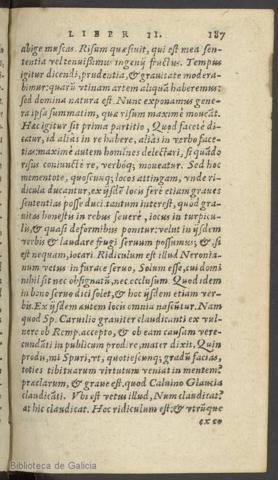 LIBER II. 187
abige muscas. Risum quæsiuit, qui est mea sen-
tentia vel tenuissimus ingenij fructus. Tempus
igitur dicendi, prudentia, & grauitate modera-
bimur: quarũ vtinam artem aliquã haberemus:
sed domina natura est. Nunc exponamus gene-
ra ipsa summatim, qua risum maximè moueãt.
Hæc igitur sit prima partitio, Quod facetè di-
catur, id aliàs in re habere, aliàs in verbo face-
tias: maximè autem homines delectari, si quãdo
risus coniunctè re, verbóq; moueatur. Sed hoc
mementote, quoscunq; locos attingam, vnde ri-
dicula ducantur, ex ijsdẽ locis ferè etiam graues
sententias posse duci. tantum interest, quòd gra-
uitas honestis in rebus seuerè, iocus in turpicu-
lis, & quasi deformibus ponitur: velut in ijsdem
verbis & laudare frugi seruum possumus, &, si
est nequam, iocari. Ridiculum est illud Neronia-
num vetus in furace seruo, Solum esse, cui domi
nihil sit nec obsignatũ, nec occlusum. Quod idem
in bono seruo dici solet, & hoc ijsdem etiam ver-
bis. Ex ijsdem autem locis omnia nascũtur. Nam
quod Sp. Caruilio grauiter claudicanti ex vul-
nere ob Remp. accepto, & ob eam causam vere-
cundãti in publicum prodire, mater dixit, Quin
prodis, mi Spuri, vt, quotiescunq; gradũ facias,
toties tibi tuarum virtutum veniat in mentem?
præclarum, & graue est. quod Caluino Glaucia
claudicãti. Vbi est vetus illud, Num claudicat?
at hic claudicat. Hoc ridiculum est: & vtrũque
Biblioteca de Galicia